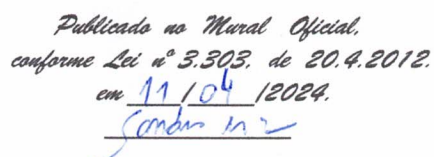 Publicado no Mural Oficial,
conforme Lei nº 3.303, de 20.4.2012.
em 11/04/2024.